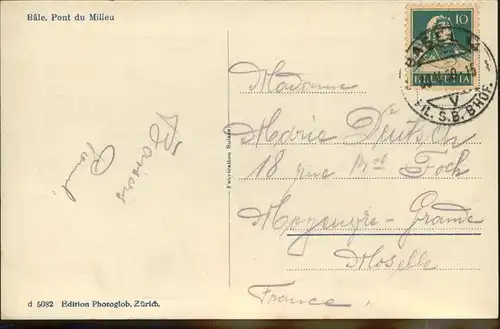 Bâle. Pont du Milieu
10
HELVETIA
BASEL
V
FIL. S.B.BHOF.
Madame
Marie Deutsch
18 rue Mal Foch
Moyeuvre-Grande
Moselle
France
Baisers
Fabrication Suisse
d 5082 Edition Photoglob, Zürich.